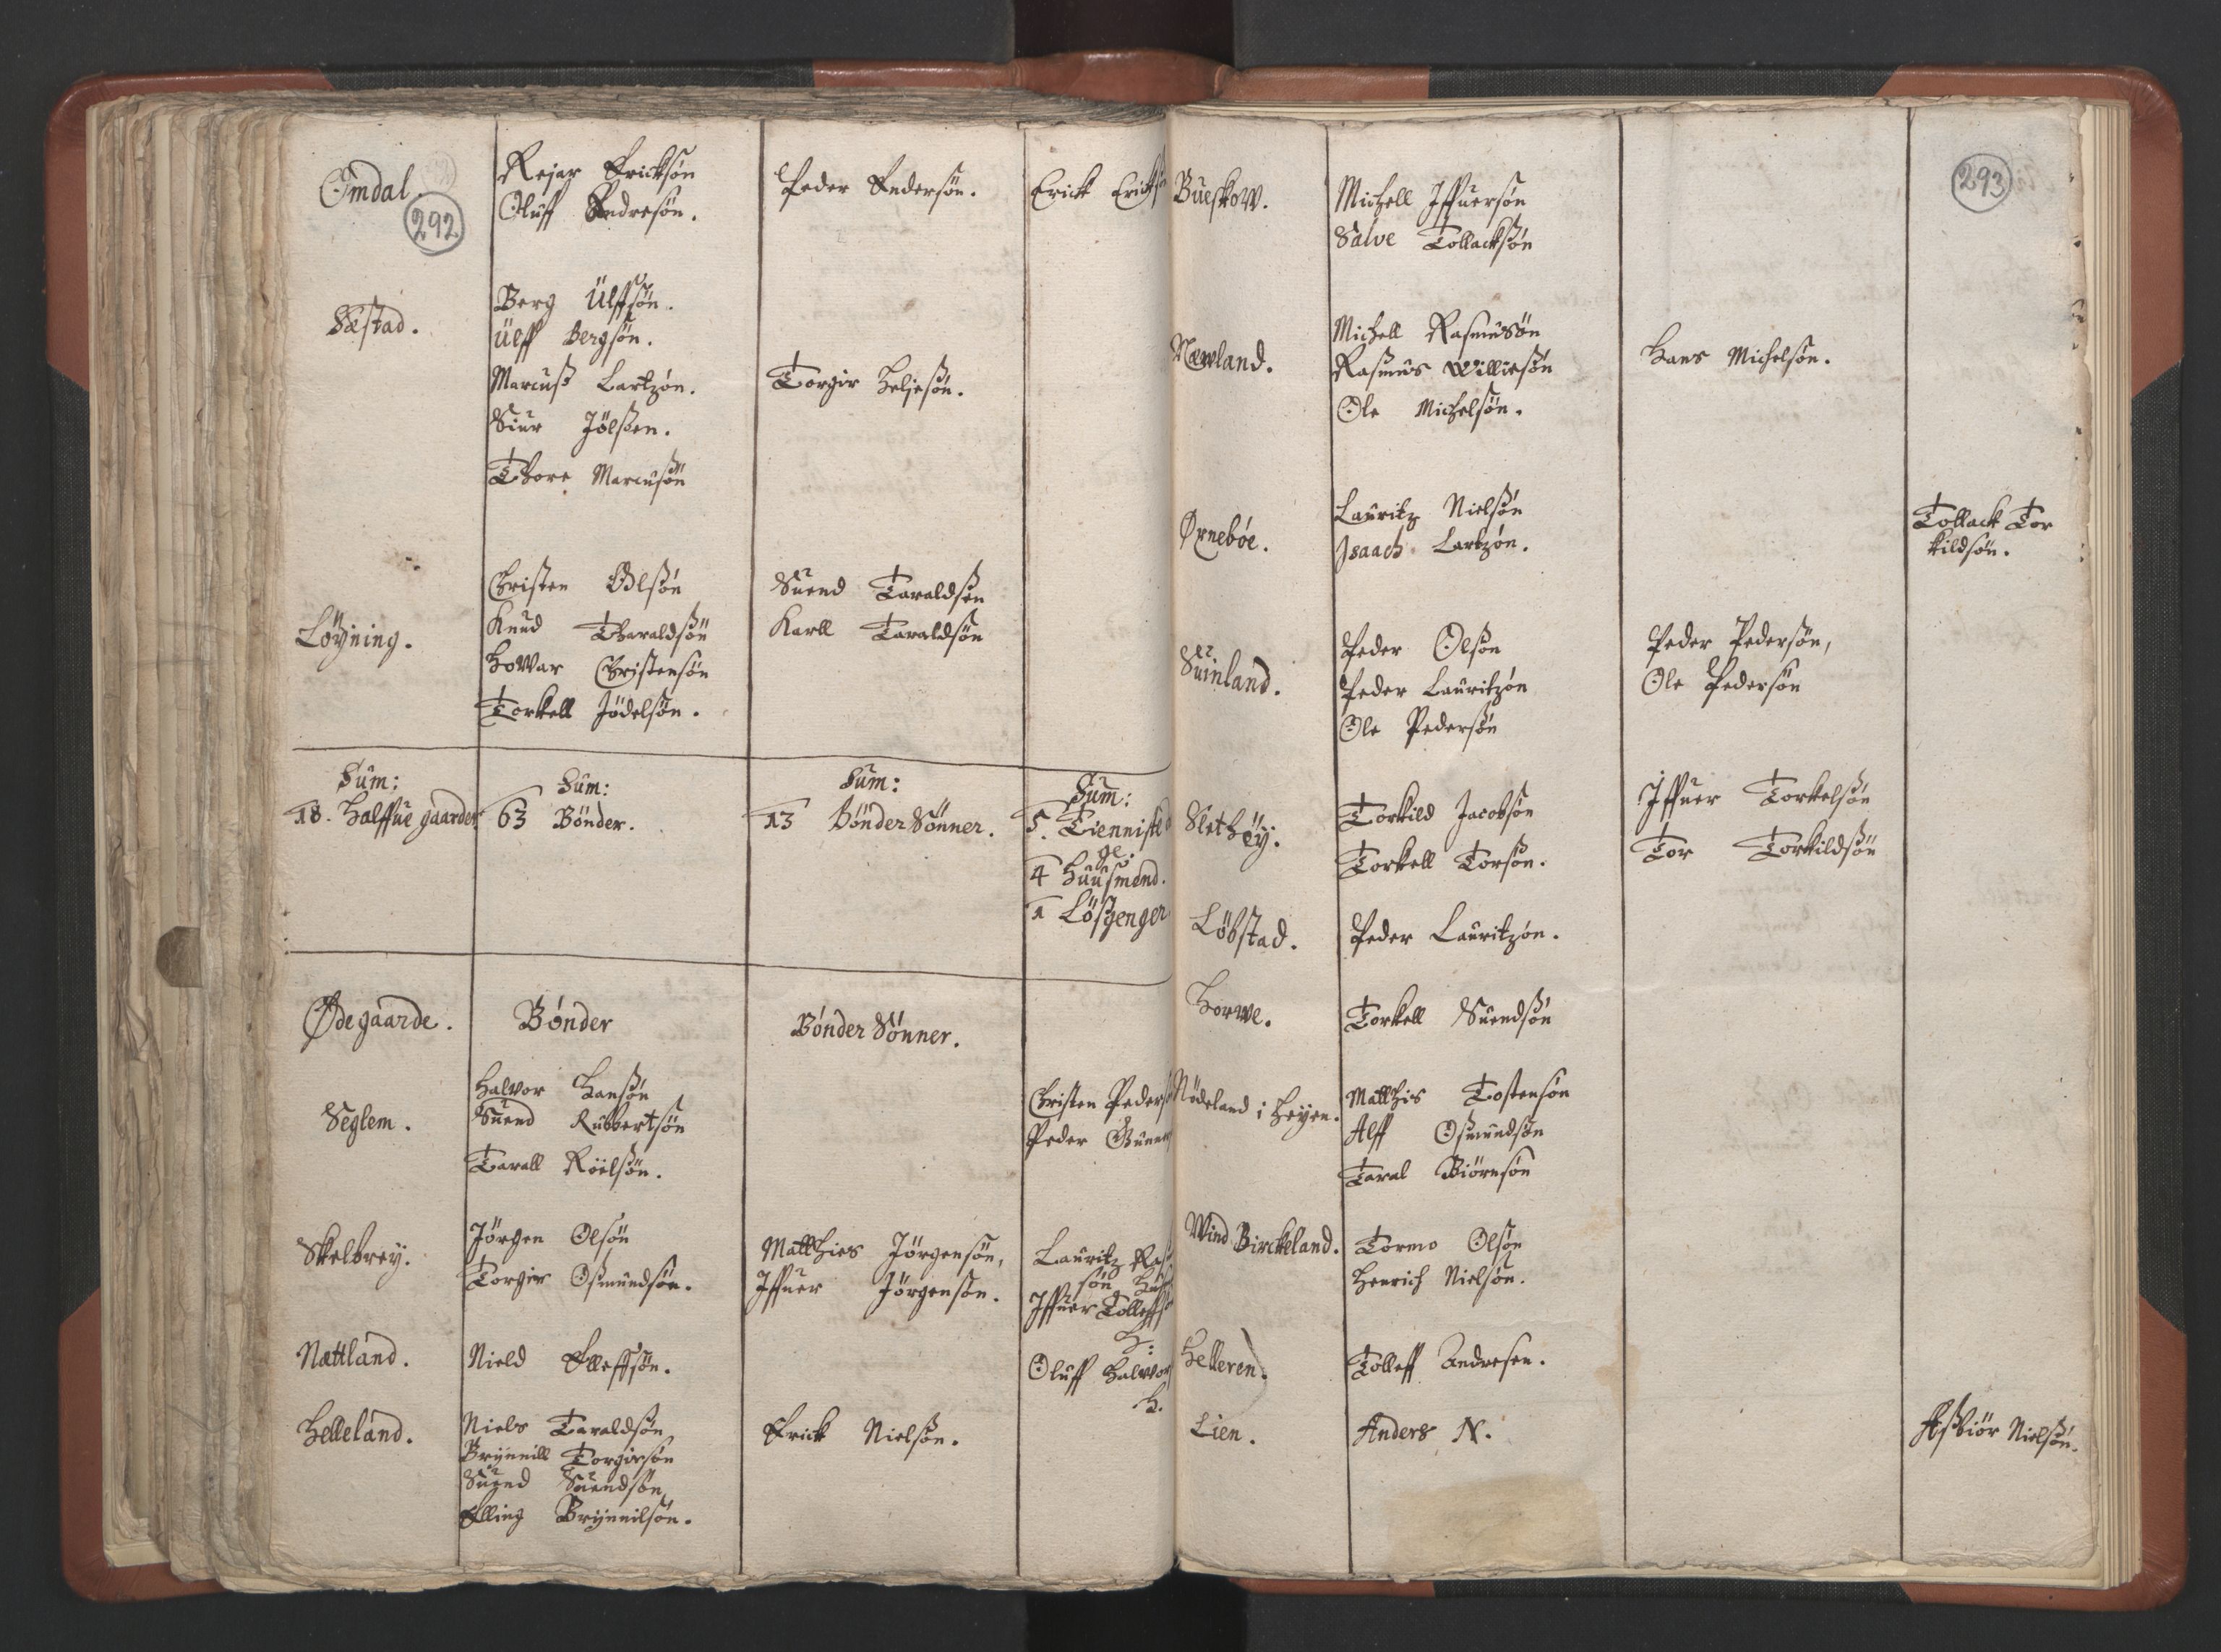 292
Omdal.
Rejar Erichsøn
Oluff Andresøn.
Peder Pedersøn.
Erick Erichsø
Sæstad.
Berg Ülffsøn.
Ülff Bergsøn.
Marcuß Lartzøn.
Siur Jölsøn.
Thore Marcusøn
Torgir Heljesøn.
Löÿning.
Christen Olsøn
Knud Tharaldsøn
Howar Christensøn
Torkell Jödelsøn.
Suend Taraldsøn
Karll Taraldsøn
Sum:
18. Halffue gaarder
Sum:
63 Bønder.
Sum:
13 Bønder Sønner.
Sum:
5. Tienniste
ge.
4 Huusmend.
1 Lößgenger
Ødegaarde.
Bønder
Bønder Sønner.
Seglem.
Halvor Hansøn
Suend Rubbertsøn
Tarall Röilsøn.
Christen Peders
Peder Gunn
Skelbrey.
Jörgen Olsøn
Torgir Osmundsøn.
Matthies Jörgensøn,
Iffuer Jörgensøn.
Lauritz Ras
søn Huus
Iffuer Tolleffs
H:
Nættland.
Nield Elleffsøn.
Oluff Halvors
H.
Helleland.
Niels Taraldsøn
Brÿnnill Torgirsøn
Suend Suendsøn
Elling Brÿnnilsøn.
Erick Nielsøn.
293
Bueskow.
Michell Iffuersøn
Salve Tollacksøn
Næwland.
Michell Rasmusøn
Rasmus Williesøn
Ole Michelsøn.
Hans Michelsøn.
Ørnebøe.
Lauritz Nielsøn
Isaach Lartzøn.
Tollack Tor
kildsøn.
Suinland.
Peder Olsøn
Peder Lauritzøn
Ole Pedersøn
Peder Pedersøn,
Ole Pedersøn
Slethëÿ.
Torkild Jacobsøn
Torkell Torsøn.
Iffuer Torkelsøn
Tor Torkildsøn
Löbstad.
Peder Lauritzøn.
Horwe.
Torkell Suendsøn
Nödeland i Heÿen.
Matthis Tostensøn
Alff Osmundsøn
Taral Biörnsøn
Wind Birckeland.
Tormo Olsøn
Henrich Nielsøn.
Helleren.
Tolleff Andresen.
Lien.
Anders N.
Aßbiör Nielsøn.